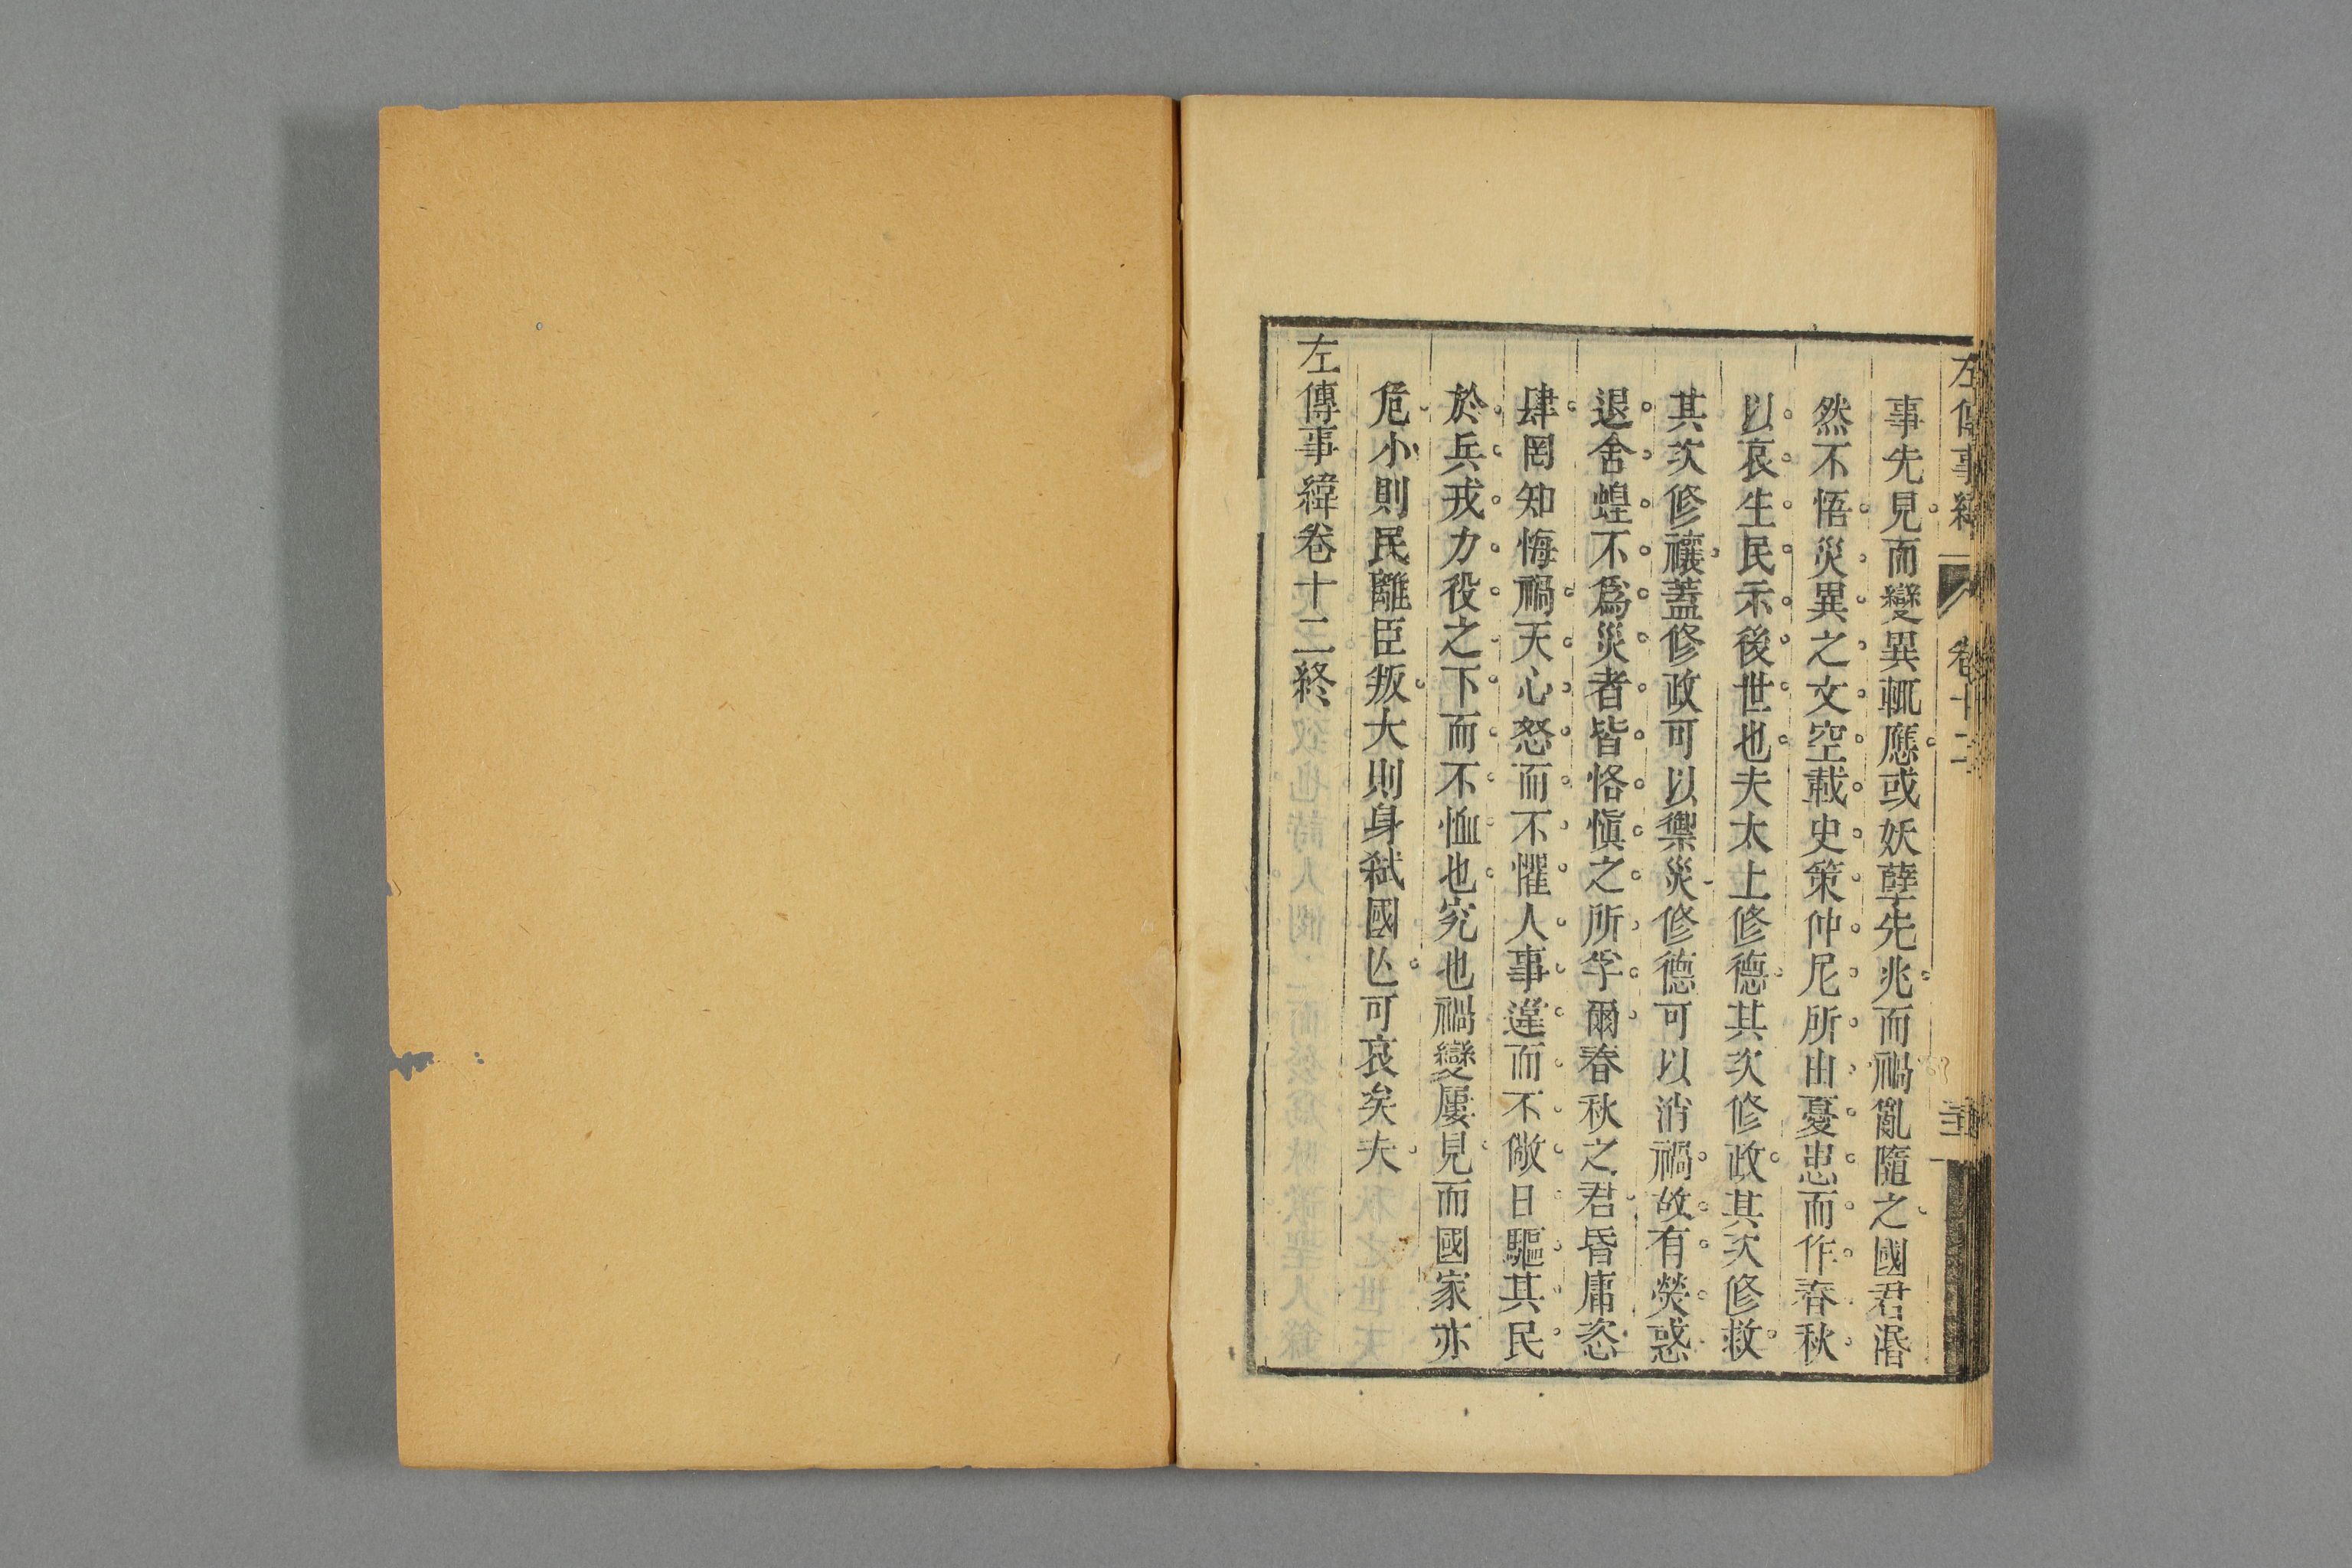 左傳事緯 卷十二
事先見而變異輒應或妖孽先兆而禍亂隨之國君湣
然不悟災異之文空載史策仲尼所由憂思而作春秋
以哀生民示後世也夫太上修德其次修政其次修救
其次修禳蓋修政可以禦災修德可以消禍故有熒惑
退舍蝗不爲災者皆恪愼之所孚爾春秋之君昏庸恣
肆罔知悔禍天心怒而不懼人事違而不儆日驅其民
於兵戎力役之下而不恤也究也禍變屢見而國家亦
危小則民離臣叛大則身弑國亾可哀矣夫
左傳事緯卷十二終